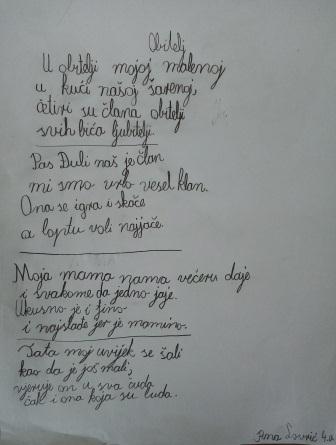 Obitelj
U obitelji mojoj malenoj
u kući našoj šarenoj,
četiri su člana obitelji
svih bića ljubitelji.
Pas Đuli naš je član
mi smo vrlo vesel klan.
Ona se igra i skače
a loptu voli najjače.
Moja mama nama večeru daje
i svakome da jedno jaje.
Ukusno je i fino
i najslađe jer je mamino.
Tata moj uvijek se šali
kao da je još mali,
vjeruje on u sva čuda
čak i ona koja su luda.
Ana 4.a